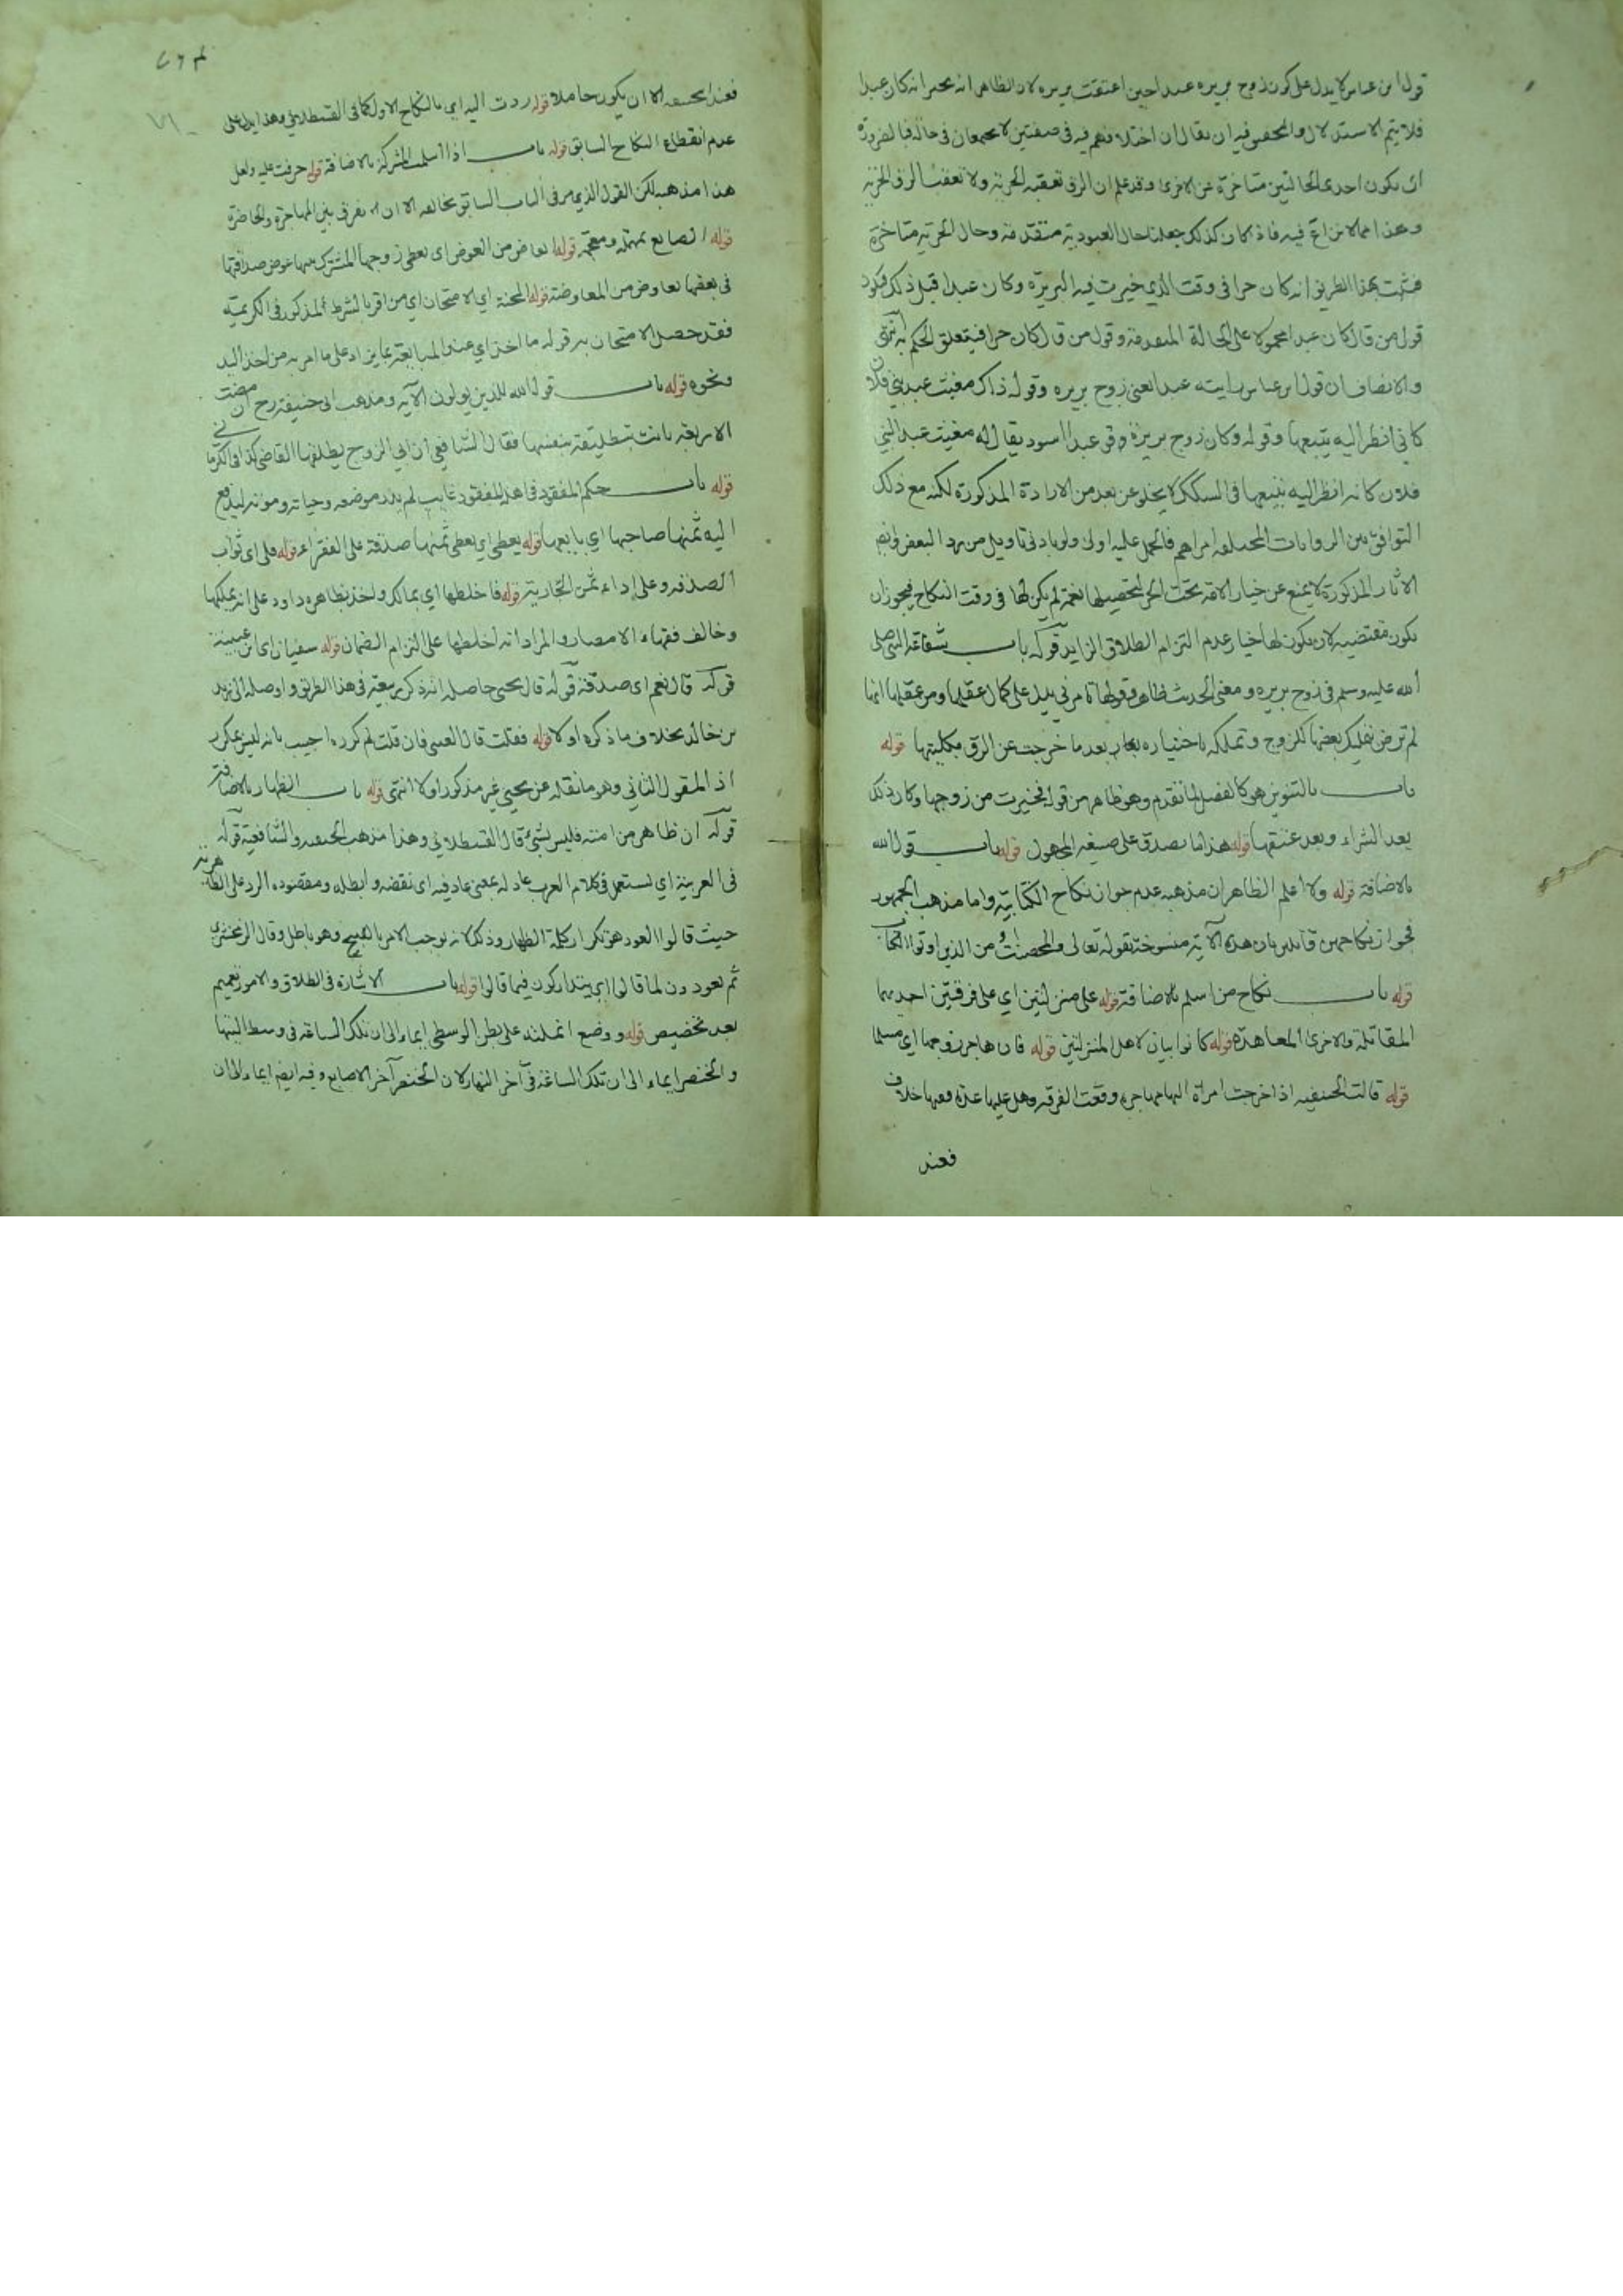 قول ابن عباس لا يدل على كون زوج بريره عبدا حين اعتقت بريره لان الظاهر انه يخبر انه كان عبدا
فلا يتم الاستدلال والتحقيق فيه ان يقال ان اختلافهم فيه في صفتين لا يجتمعان في حالة فبالضرورة
ان يكون احدى الحالتين متاخرة عن الاخرى وقد علم ان الرق تعقبه الحرية ولا تعقب الرق الحرية
وهذا مما لا نزاع فيه فاذا كان كذلك جعلنا حال العبودية متقدمة وحال الحرية متاخرة
فثبت بهذا الطريق انه كان حرا في وقت الذي خيرت فيه البريرة وكان عبدا قبل ذلك فيكون
قول من قال كان عبدا محمولا على الحالة المتقدمة وقول من قال كان حرا فيتعلق الحكم به انتهى
والانصاف ان قول ابن عباس رايته عبدا يعني زوج بريره وقوله ذاك مغيث عبد بني فلان
كاني انظر اليه يتبعها وقوله وكان زوج بريرة وقو عبدا اسود يقال له مغيث عبد البني
فلان كانه انظر اليه يتبعها في السكك لا يخلو عن بعد من الارادة المذكورة لكنه مع ذلك
التوافق بين الروايات المختلفة امر اهم فالحمل عليه اولى ولو بادنى تاويل من رد البعض وايضا
الاثار المذكورة لا يمنع عن خيار الامة تحت الحر لتحصيلها نعمة لم يكن لها في وقت النكاح فيجوز ان
يكون مقتضيه لان يكون لها خيار عدم التزام الطلاق الزايد قوله باب شفاعة النبي صلى
الله عليه وسلم في زوج بريره ومعنى الحديث ظاهر وقولها تامرني يدل على كمال عقلها ومن عقلها انها
لم ترض تمليك بعضها للزوج وتملكه باختياره بعد ما خرجت عن الرق بكليتها قوله
باب بالتنوين هو كالفصل لما تقدم وهو ظاهر من قوله فخيرت من زوجها وكان ذلك
بعد الشراء وبعد عتقها قوله هذا ما تصدق على صيغه المجهول قوله باب قول الله
بالاضافة قوله ولا اعلم الظاهر ان مذهبه عدم جواز نكاح الكتابية واما مذهب الجمهور
فجواز نكاحهن قايلين بان هذه الآية منسوخة بقوله تعالى والمحصنت من الذين اوتوا الكتاب
قوله باب نكاح من اسلم بالاضافة قوله على منزلتين اي على فرقتين احديهما
المقاتلة والاخرى المعاهدة قوله كانوا بيان لاهل المنزلتين قوله فان هاجر زوجها اي مسلما
قوله قالت الحنفيه اذا خرجت امراة الينا مهاجرة وقعت الفرقه وهل عليها عدة ففيها خلاف
فعند
فعند ابي حنيفه الا ان يكون حاملا قوله ردت اليه اي بالنكاح الاول كما في القسطلاني وهذا يدل على
عدم انقطاع النكاح السابق قوله باب اذا اسلمت المشركة بالاضافة قوله حرمت عليه ولعل
هذا مذهبه لكن القول الذي مر في الباب السابق يخالفه الا ان يفرق بين المهاجرة والحاضرة
قوله الصايغ بمهملة ومعجمة قوله ايعاض من العوض اي يعطى زوجها المشرك منها عوض صداقها
في بعضها يعاوض من المعاوضة قوله المحنة اي الامتحان اي من اقر بالشرط المذكور في الكريمة
فقد حصل الامتحان به قوله ما اخذ اي عند المبايعة بما يزاد على ما امر به من اخذ اليد
ونحوه قوله باب قول الله للذين يولون الآية ومذهب ابي حنيفة رح ان مضت
الاربعة بانت بتطليقة بنفسها فقال الشافعي ان ابي الزوج يطلقها القاضي كذا في الكرماني
قوله باب حكم المفقود في اهله المفقود غايب لم يدر موضعه وحياته وموته ليدفع
اليه ثمنها صاحبها اي بايعها قوله يعطى اي يعطى ثمنها صدقة على الفقراء قوله فلي اي ثواب
الصدقه وعلي اداء ثمن الجارية قوله فاخلطها اي بمالك واخذ بظاهره داود على انه يملكها
وخالف فقهاء الامصار والمراد انه اخلطها على التزام الضمان قوله سفيان اي ابن عيينة
قوله قال نعم اي صدقة قوله قال يحيى حاصله انه ذكر ربيعة في هذا الطريق واوصله الى زيد
بن خالد بخلاف ما ذكره اولا قوله فقلت قال العيني فان قلت لم كرره اجيب بانه ليس بمكرر
اذ المقول الثاني وهو ما نقله عن يحيى غير مذكور اولا انتهى قوله باب الظهار بالاضافة
قوله ان ظاهر من امته فليس بشيء قال القسطلاني وهذا مذهب الحنفيه والشافعية قوله
في العربية اي يستعمل في كلام العرب عاد له بمعنى عاد فيه اي نقضه وابطله ومقصوده الرد على الظاهرية
حيث قالوا العود هو تكرار كلمة الظهار وذلك لانه يوجب الامر بالقبيح وهو باطل وقال الزمخشري
ثم يعودون لما قالوا اي يتداركون فيما قالوا قوله باب الاشارة في الطلاق والامور تعميم
بعد تخصيص قوله ووضع انملته على بطن الوسطى ايماء الى ان تلك الساعة في وسط النهار
والخنصر ايماء الى ان تلك الساعة في آخر النهار لان الخنصر آخر الاصابع وفيه ايضا ايماء الى ان